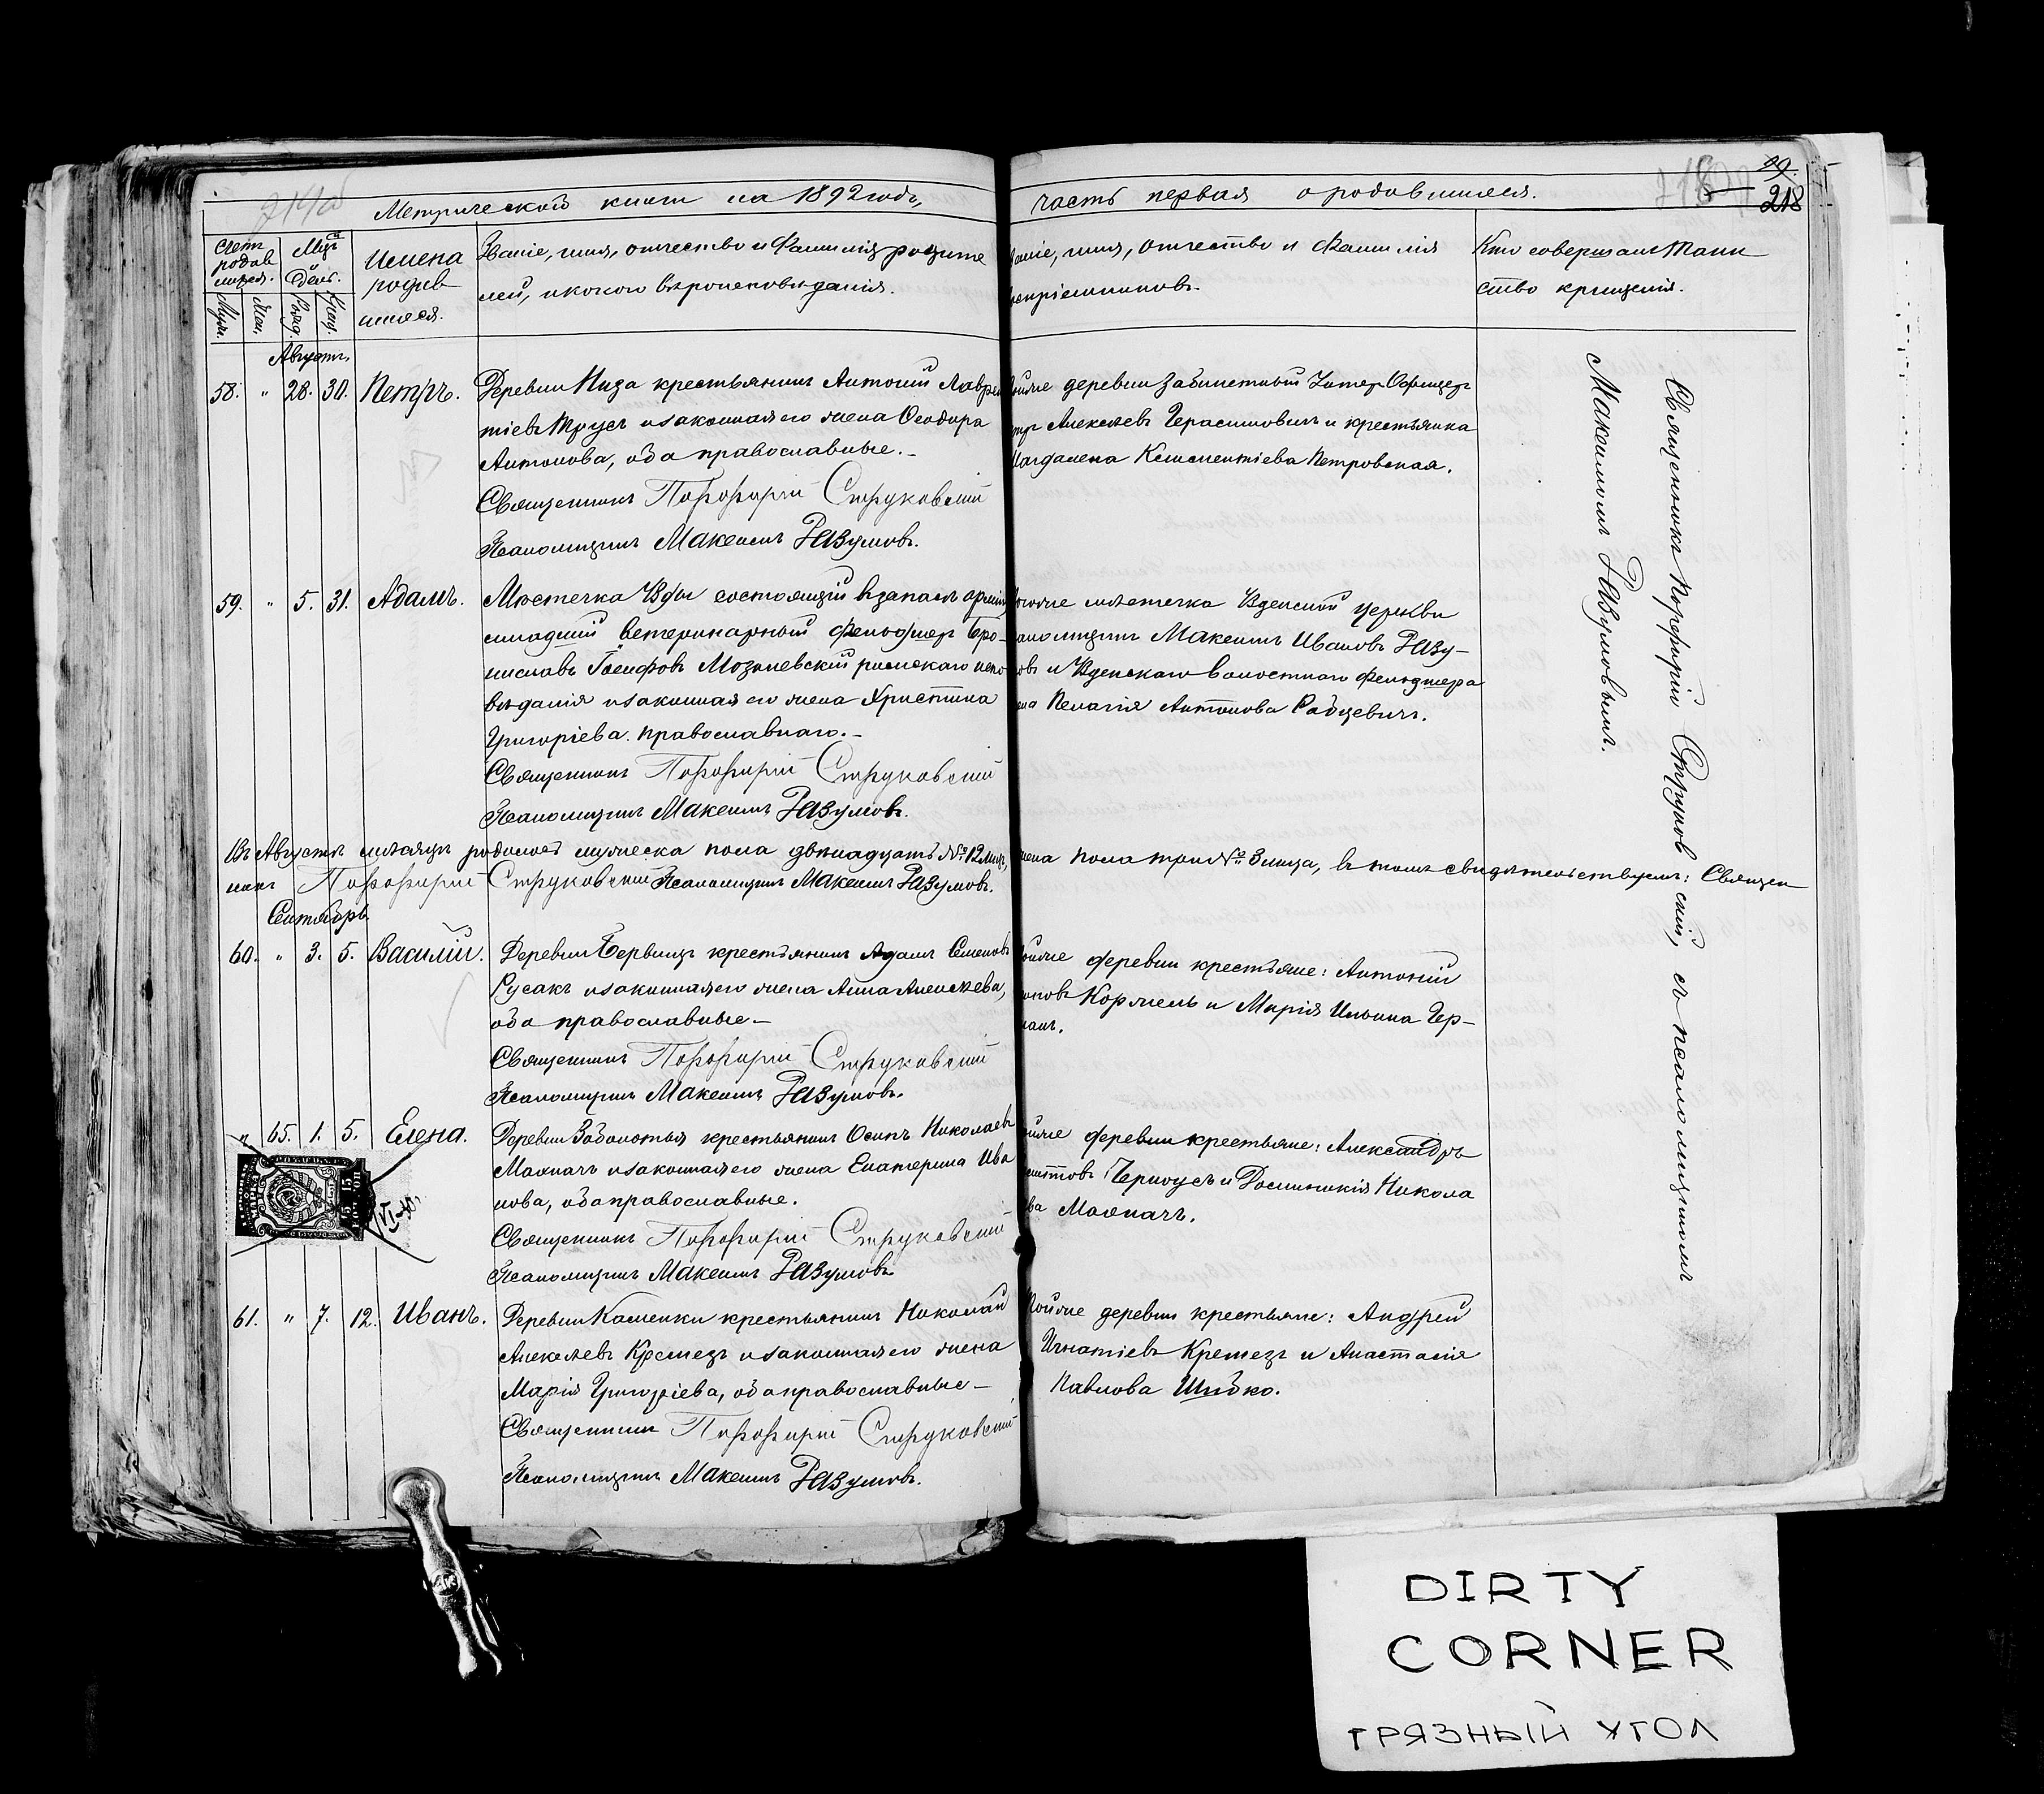 Метрической книги на 1892 годъ,
часть первая о родившихся.
29.
218
Счетъ родив
шихся.
Муж.
Жен.
Мѣц. и день.
Рожд.
Крещ.
Имена
родив
шихся.
Званіе, имя, отчество и фамилія родите
лей, и какого вѣроисповѣданія.
Званіе, имя, отчество и фамилія
воспріемниковъ.
Кто совершалъ таин
ство крещенія.
Августъ.
58. " 28. 30. Петръ.
Деревни Низа крестьянинъ Антоній Лаврен
тіевъ Трусъ и законная его жена Ѳеодора
Антонова, оба православные.-
Священникъ Порфирій Струковскій
Псаломщикъ Максимъ Разумовъ.
тойже деревни Унтеръ Офицеръ
Петръ Алексѣевъ Герасимовичъ и крестьянка
Магдалена Климентіева Петровская.
59. " 5. 31. Адамъ.
Мѣстечка Узды состоящій въ запасѣ арміи
младшій ветеринарный фельдшеръ Бро-
ниславъ Іосифовъ Мозолевскій римскаго испо
вѣданія и законная его жена Христина
Григоріева православнаго.-
Священникъ Порфирій Струковскій
Псаломщикъ Максимъ Разумовъ.
Тогоже мѣстечка Узденской церкви
псаломщикъ Максимъ Ивановъ Разу-
мовъ и Узденскаго волостнаго фельдшера
жена Пелагія Антонова Радцевичъ.
Въ Августѣ мѣсяцѣ родилось мужеска пола двѣнадцать № 12 жен
ска пола три № 3 лица, въ томъ свидѣтельствуемъ: Священ
никъ Порфирій Струковскій Псаломщикъ Максимъ Разумовъ.
Сентябрь.
60. " 3. 5. Василій.
Деревни крестьянинъ Адамъ Семеновъ
Русакъ и законная его жена Анна Алексѣева,
оба православные-
Священникъ Порфирій Струковскій
Псаломщикъ Максимъ Разумовъ.
тойже деревни крестьяне: Антоній
Коржель и Марія Ильина Чер-
" 65. 1. 5. Елена.
Деревни Заболотья крестьянинъ Осипъ Николаевъ
Махначъ и законная его жена Екатерина Ива
нова, оба православные.
Священникъ Порфирій Струковскій
Псаломщикъ Максимъ Разумовъ
тойже деревни крестьяне: Александръ
Черноусъ и Доминикія Никола
ева Махначъ.
61. " 7. 12. Иванъ.
Деревни Каменки крестьянинъ Николай
Алексѣевъ Кремезъ и законная его жена
Марія Григоріева, оба православные-
Священникъ Порфирій Струковскій
Псаломщикъ Максимъ Разумовъ.
Тойже деревни крестьяне: Андрей
Игнатіевъ Кремезъ и Анастасія
Павлова Шибко.
Священникъ Порфирій Струковскій, съ псаломщикомъ
Максимомъ Разумовымъ.
DIRTY
CORNER
ГРЯЗНЫЙ УГОЛ